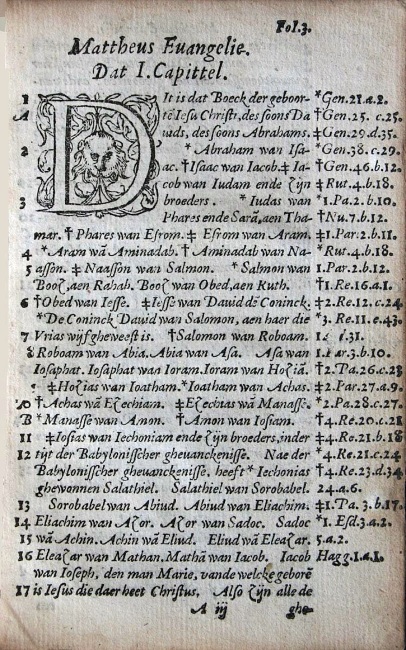 Fol.3.
Mattheus Euangelie.
Dat I. Capittel.
1 DIt is dat Boeck der geboor- *Gen.21.a.2.
A tē Iesu Christi, des soons Da †Gen.25. c.25.
uids, des soons Abrahams. ‡Gen.29.d.35.
2 * Abraham wan Isa- *Gen.38.c.29.
ac. †Isaac wan Iacob. ‡ Ia- †Gen.46.b.12.
cob wan Iudam ende zijn ‡Rut.4.b.18.
3 broeders. * Iudas wan *1.Pa.2.b.10.
Phares ende Sarā, aen Tha- †Nu.7.b.12.
mar. † Phares wan Esrom. ‡ Esrom wan Aram. ‡1.Par.2.b.11.
4 *Aram wā Aminadab. † Aminadab wan Na- *Rut.4.b.18.
5 asson. ‡ Naasson wan Salmon. * Salmon wan 1.Par.2.b.12.
Booz, aen Rahab. Booz wan Obed, aen Ruth. †1.Re.16.a.1.
6 †Obed wan Iesse. ‡Iesse wan Dauid de Coninck. ‡2.Re.12.c.24.
*De Coninck Dauid wan Salomon, aen haer die *3. Re.11.e.43.
7 Vrias wijf gheweest is. †Salomon wan Roboam.
8 Roboam wan Abia. Abia wan Asa. Asa wan 1.Par.3.b.10.
Iosaphat. Iosaphat wan Ioram. Ioram wan Hoziā. †2.Pa.26.c.23
‡Hozias wan Ioatham. *Ioatham wan Achas. ‡2.Par.27.a.9.
10 †Achas wā Ezechiam. ‡Ezechias wā Manasse. *2.Pa.28.c.27.
B *Manasse wan Amon. †Amon wan Iosiam. †4.Re.20.c.21
11 ‡Iosias wan Iechoniam ende zijn broeders, inder ‡4.Re.21.b.18
12 tijt der Babylonisscher gheuanckenisse. Nae der *4.Re.21.c.24.
Babylonisscher gheuanckenisse, heeft * Iechonias †4.Re.23.d.34
ghewonnen Salathiel. Salathiel wan Sorobabel. 24.a.6.
13 Sorobabel wan Abiud. Abiud wan Eliachim. ‡1.Pa.3.b.17.
14 Eliachim wan Azor. Azor wan Sadoc. Sadoc *1. Esd.3.a.2.
15 wā Achin. Achin wā Eliud. Eliud wā Eleazar. 5.a.2.
16 Eleazar wan Mathan. Mathā wan Iacob. Iacob Hagg.1.a.1.
wan Ioseph, den man Marie, vande welcke geborē
17 is Iesus die daer heet Christus. Also zijn alle de
A iij ghe-